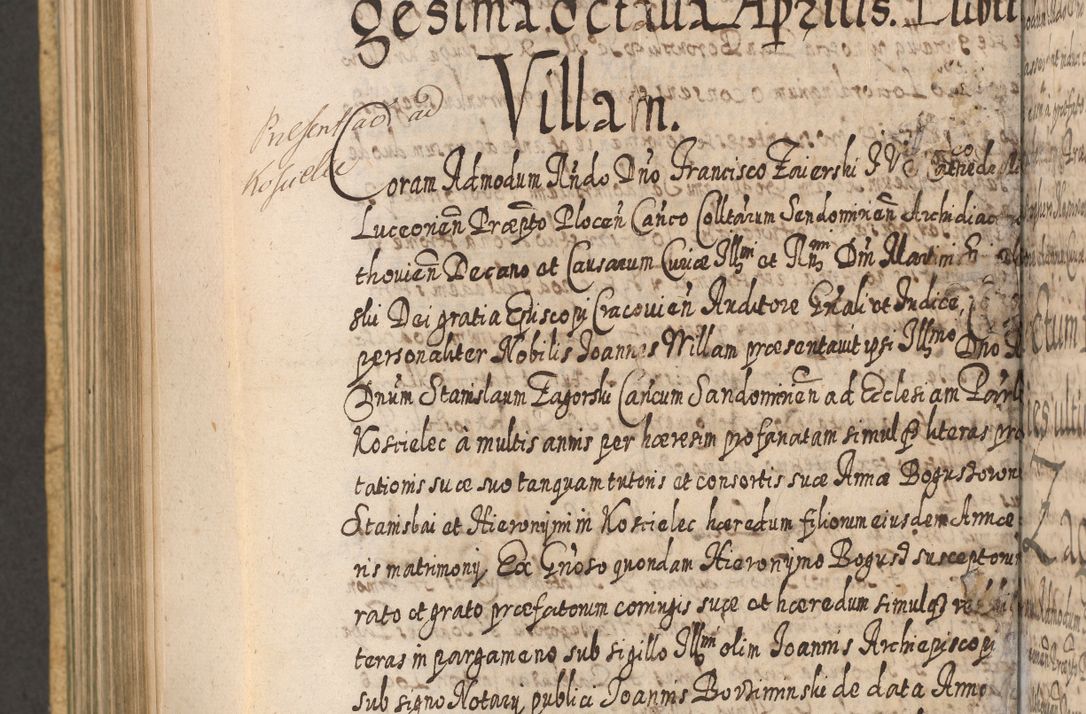 gesima octava Aprilis. Lubli
Villam.
Præsent(ao) ad
Kościelec
Coram Admodum Rńdo Dno Francisco Zaierski J V Cathedr
Luceorień Præpto Ploceń Canco Colltarum Sendomirień Archidiac
thovień Decano et Causarum Curiæ Illmi et Rmi Dni Martini
ski Dei gratia Episcopi Cracovień Auditore Gńali et Judice,
personaliter Nobilis Joannes Willam præsentavit ipsi Illmo Dno
Dnum Stanislaum Zagorski Cancum Sandomirień ad Ecclesiam Par
Koscielec à multis annis per hæresim profanatam simulq3 literas præ
tationis suæ suo tanquam tutoris et consortis suæ Annæ Bogus
Stanislai et Hieronymi in Koscielec hæredum filiorum eiusdem Annæ
ris matrimonij Ex Gńoso quondam Hieronymo Bogusz susceptorum
rato et grato præfatorum coniugis suæ et hæredum simulq3
teras in pargameno sub sigillo Illmi olim Joannis Archiepiscopi
sub signo Notarij publici Joannis Borziminski de data Anno